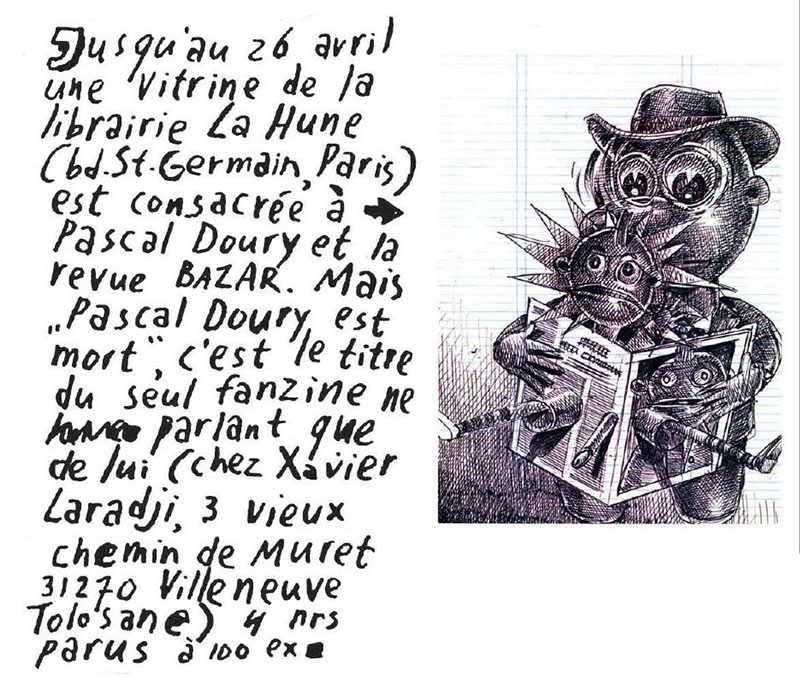 Jusqu'au 26 avril
une vitrine de la
librairie La Hune
(bd. St. Germain, Paris)
est consacrée à →
Pascal Doury et la
revue BAZAR. Mais
„Pascal Doury est
mort", c'est le titre
du seul fanzine ne
parlant que
de lui (chez Xavier
Laradji, 3 vieux
chemin de Muret
31270 Villeneuve
Tolosane) 4 nrs
parus à 100 ex.